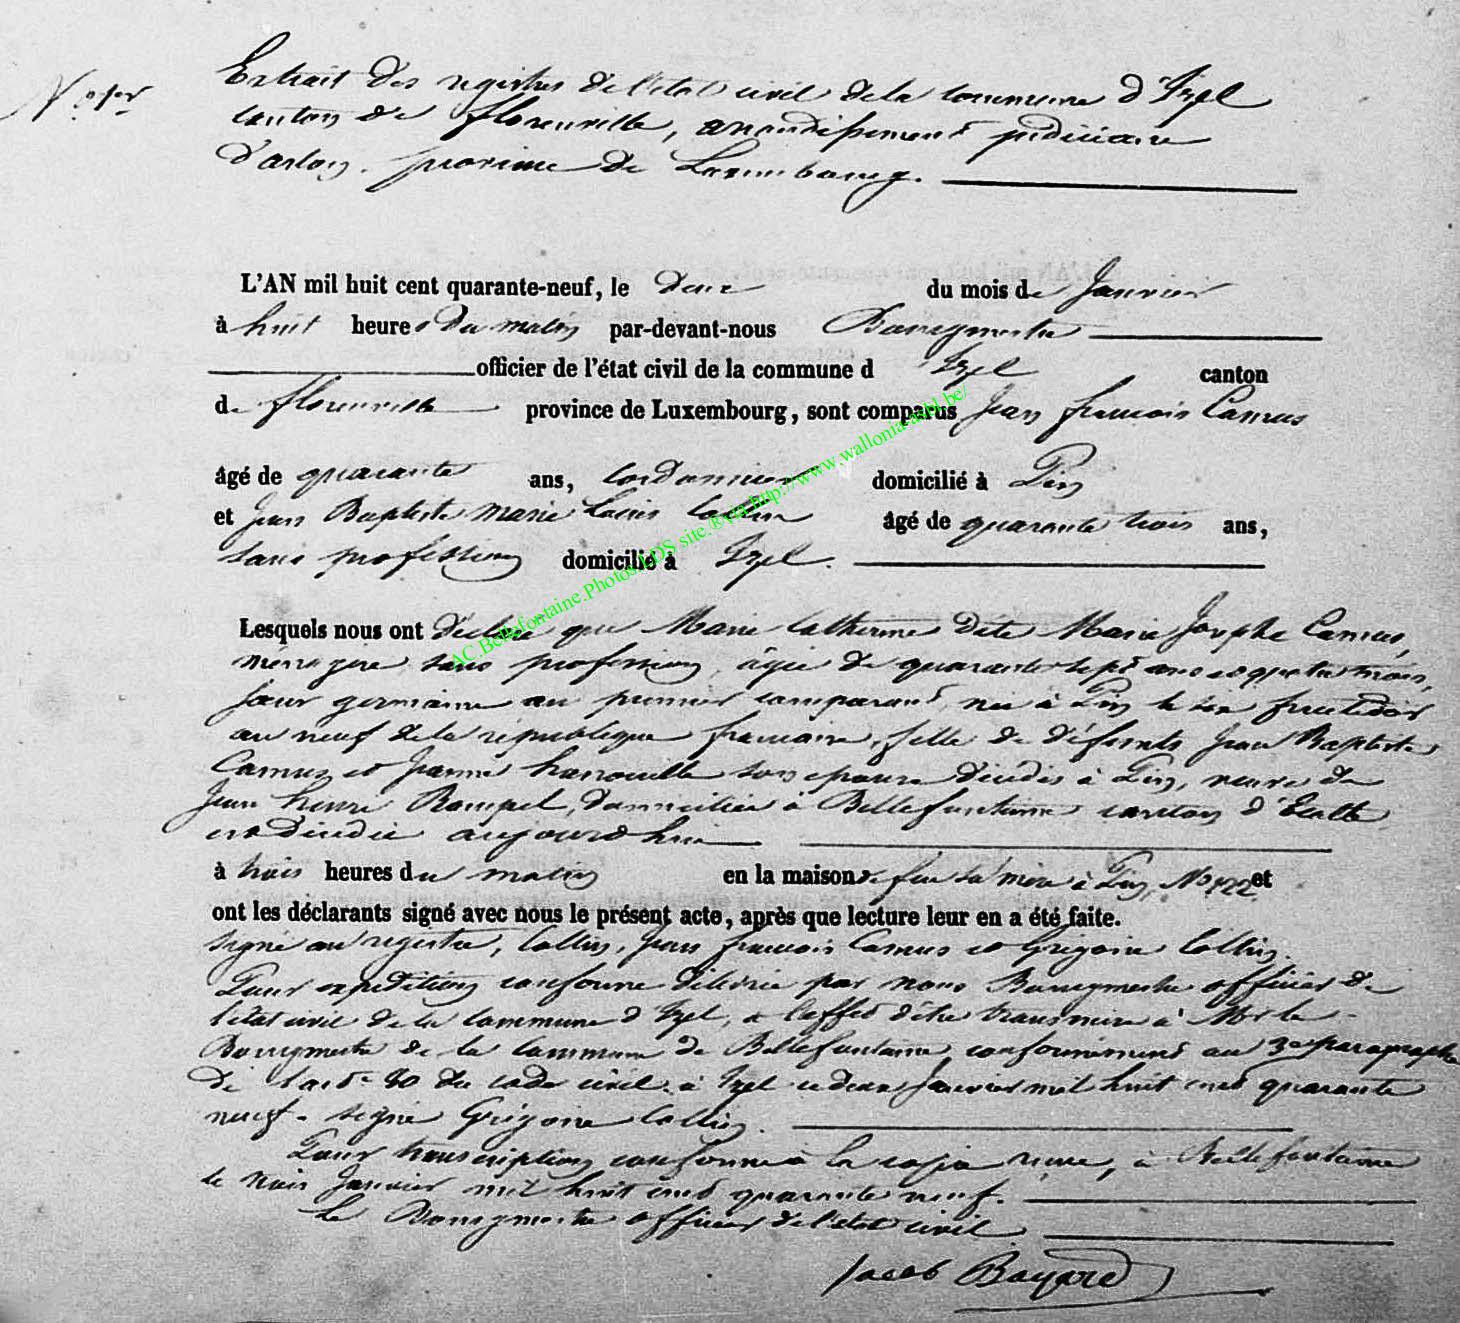 N° 1er
Extrait des registres de l'état civil de la commune d'Izel
canton de Florenville, arrondissement judiciaire
d'arlon, province de Luxembourg.
L'AN mil huit cent quarante-neuf, le deux du mois de Janvier
à huit heures du matin par-devant-nous Bourgmestre
officier de l'état civil de la commune d Izel canton
de florenville province de Luxembourg, sont comparus Jean françois Camus
âgé de quarante ans, cordonnier domicilié à Pin
et Jean Baptiste Marie Louis Collin âgé de quarante trois ans,
sans profession domicilié à Izel.
Lesquels nous ont déclaré que Marie Catherine dite Marie Josephe Camus,
ménagère sans profession, agée de quarante sept ans et quatre mois,
sœur germaine au premier comparant, née à Pin le six fructidor
an neuf de la république francaise, fille de défunts Jean Baptiste
Camus et Jeanne son epouse décédés à Pin, veuve de
Jean henri Rompel, domiciliée à Bellefontaine canton d'Etalle
est décédée aujourd'hui
à trois heures du matin en la maison de feu sa mère à Pin, No 122 et
ont les déclarants signé avec nous le présent acte, après que lecture leur en a été faite.
signé au registre, Collin, Jean francois Camus et Grégoire Collin.
Pour expédition conforme délivrée par nous Bourgmestre officier de
l'état civil de la commune d'Izel, à l'effet d'être transmise à Mr le
Bourgmestre de la commune de Bellefontaine, conformément au 3e paragraphe
de l'art. 80 du code civil. à Izel ce deux Janvier mil huit cent quarante
neuf. signé Grégoire Collin.
Pour transcription conforme à la copie reçue, à Bellefontaine
le trois Janvier mil huit cent quarante neuf.
Le Bourgmestre officier de l'etat civil
Jacob Bayard
AC.Bellefontaine.Photos.LDS site.®via http://www.wallonia-asbl.be/